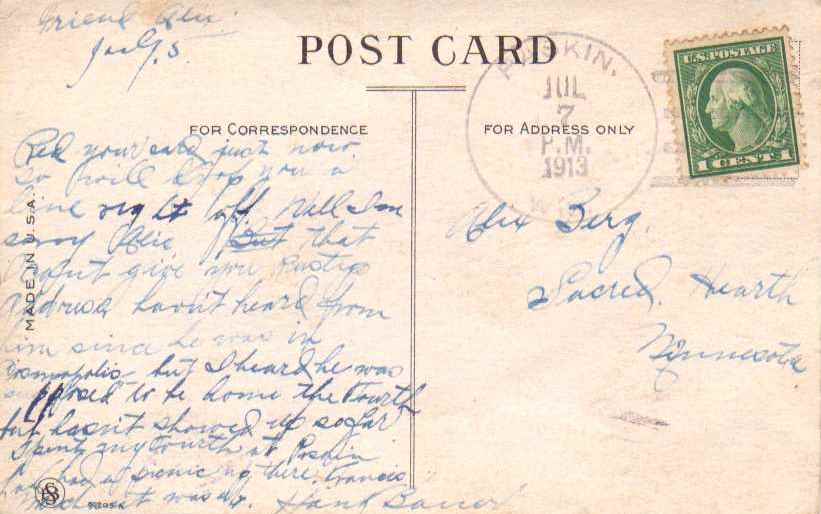 Friend Alix
July 5.
POST CARD
FOR CORRESPONDENCE
FOR ADDRESS ONLY
Rec your card just now
so will drop you a
line right off. Well I'm
sorry Alix but that
I can't give you
address havn't heard from
him since he was in
Cosmopolis but I heard he was
supposed to be home the Fourth
but hasn't showed up so far
Spent my Fourth at Poskin
had a picnic up there. Francis
it was
Hank Bauer
MADE IN U.S.A.
POSKIN,
JUL
7
P.M.
1913
WIS.
U.S. POSTAGE
1 CENT 1
Alix Berg,
Sacred Hearth
Minnesota